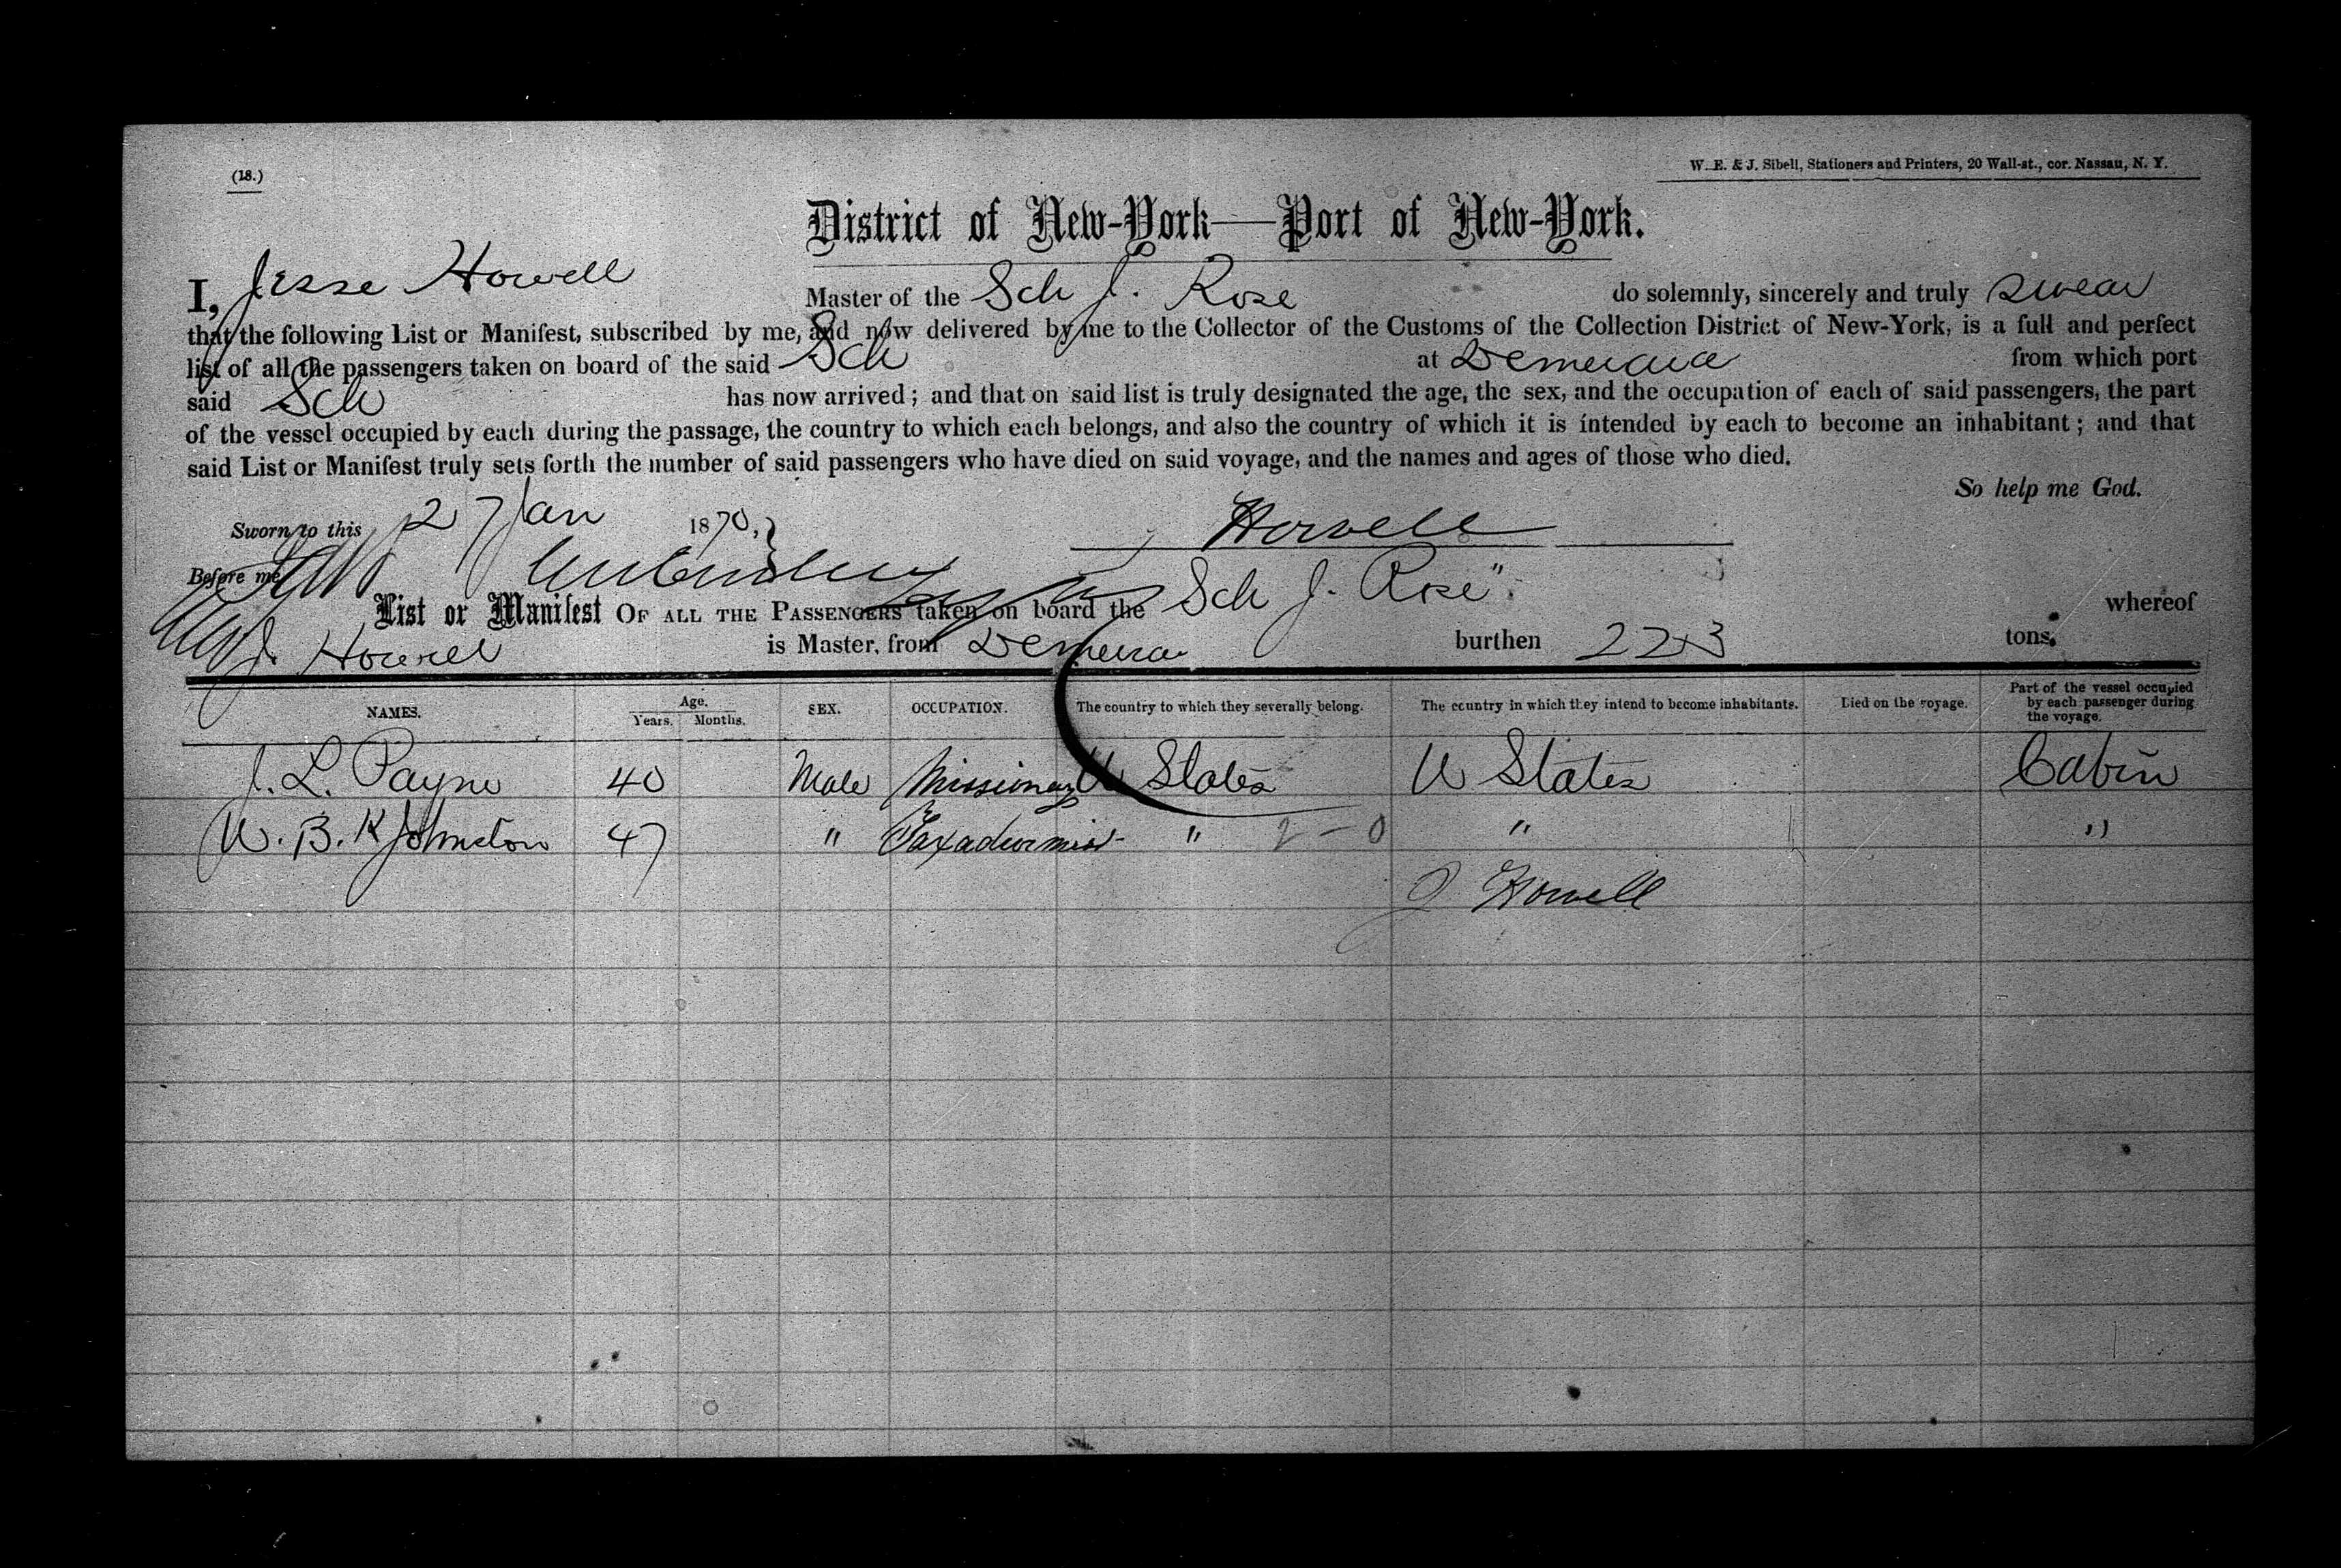 (18.)
W. E. & J. Sibell, Stationers and Printers, 20 Wall-st., cor. Nassau, N. Y.
District of New-York—Port of New-York.
I, Jesse Howell Master of the Sch J. Rose do solemnly, sincerely and truly swear
that the following List or Manifest, subscribed by me, and now delivered by me to the Collector of the Customs of the Collection District of New-York, is a full and perfect
list of all the passengers taken on board of the said Sch at Demerara from which port
said Sch has now arrived; and that on said list is truly designated the age, the sex, and the occupation of each of said passengers, the part
of the vessel occupied by each during the passage, the country to which each belongs, and also the country of which it is intended by each to become an inhabitant; and that
said List or Manifest truly sets forth the number of said passengers who have died on said voyage, and the names and ages of those who died.
So help me God.
Sworn to this 27 Jan 1870, J Howell
Before me
List or Manifest OF ALL THE PASSENGERS taken on board the Sch J. Rose" whereof
J. Howell is Master, from Demerara burthen 223 tons.
NAMES. Age. Years. Months. SEX. OCCUPATION. The country to which they severally belong. The country in which they intend to become inhabitants. Died on the voyage. Part of the vessel occupied by each passenger during the voyage.
J. L. Payne 40 Male Missionary U States U States Cabin
W. B. K Johnston 47 " " 2-0 " "
J Howell